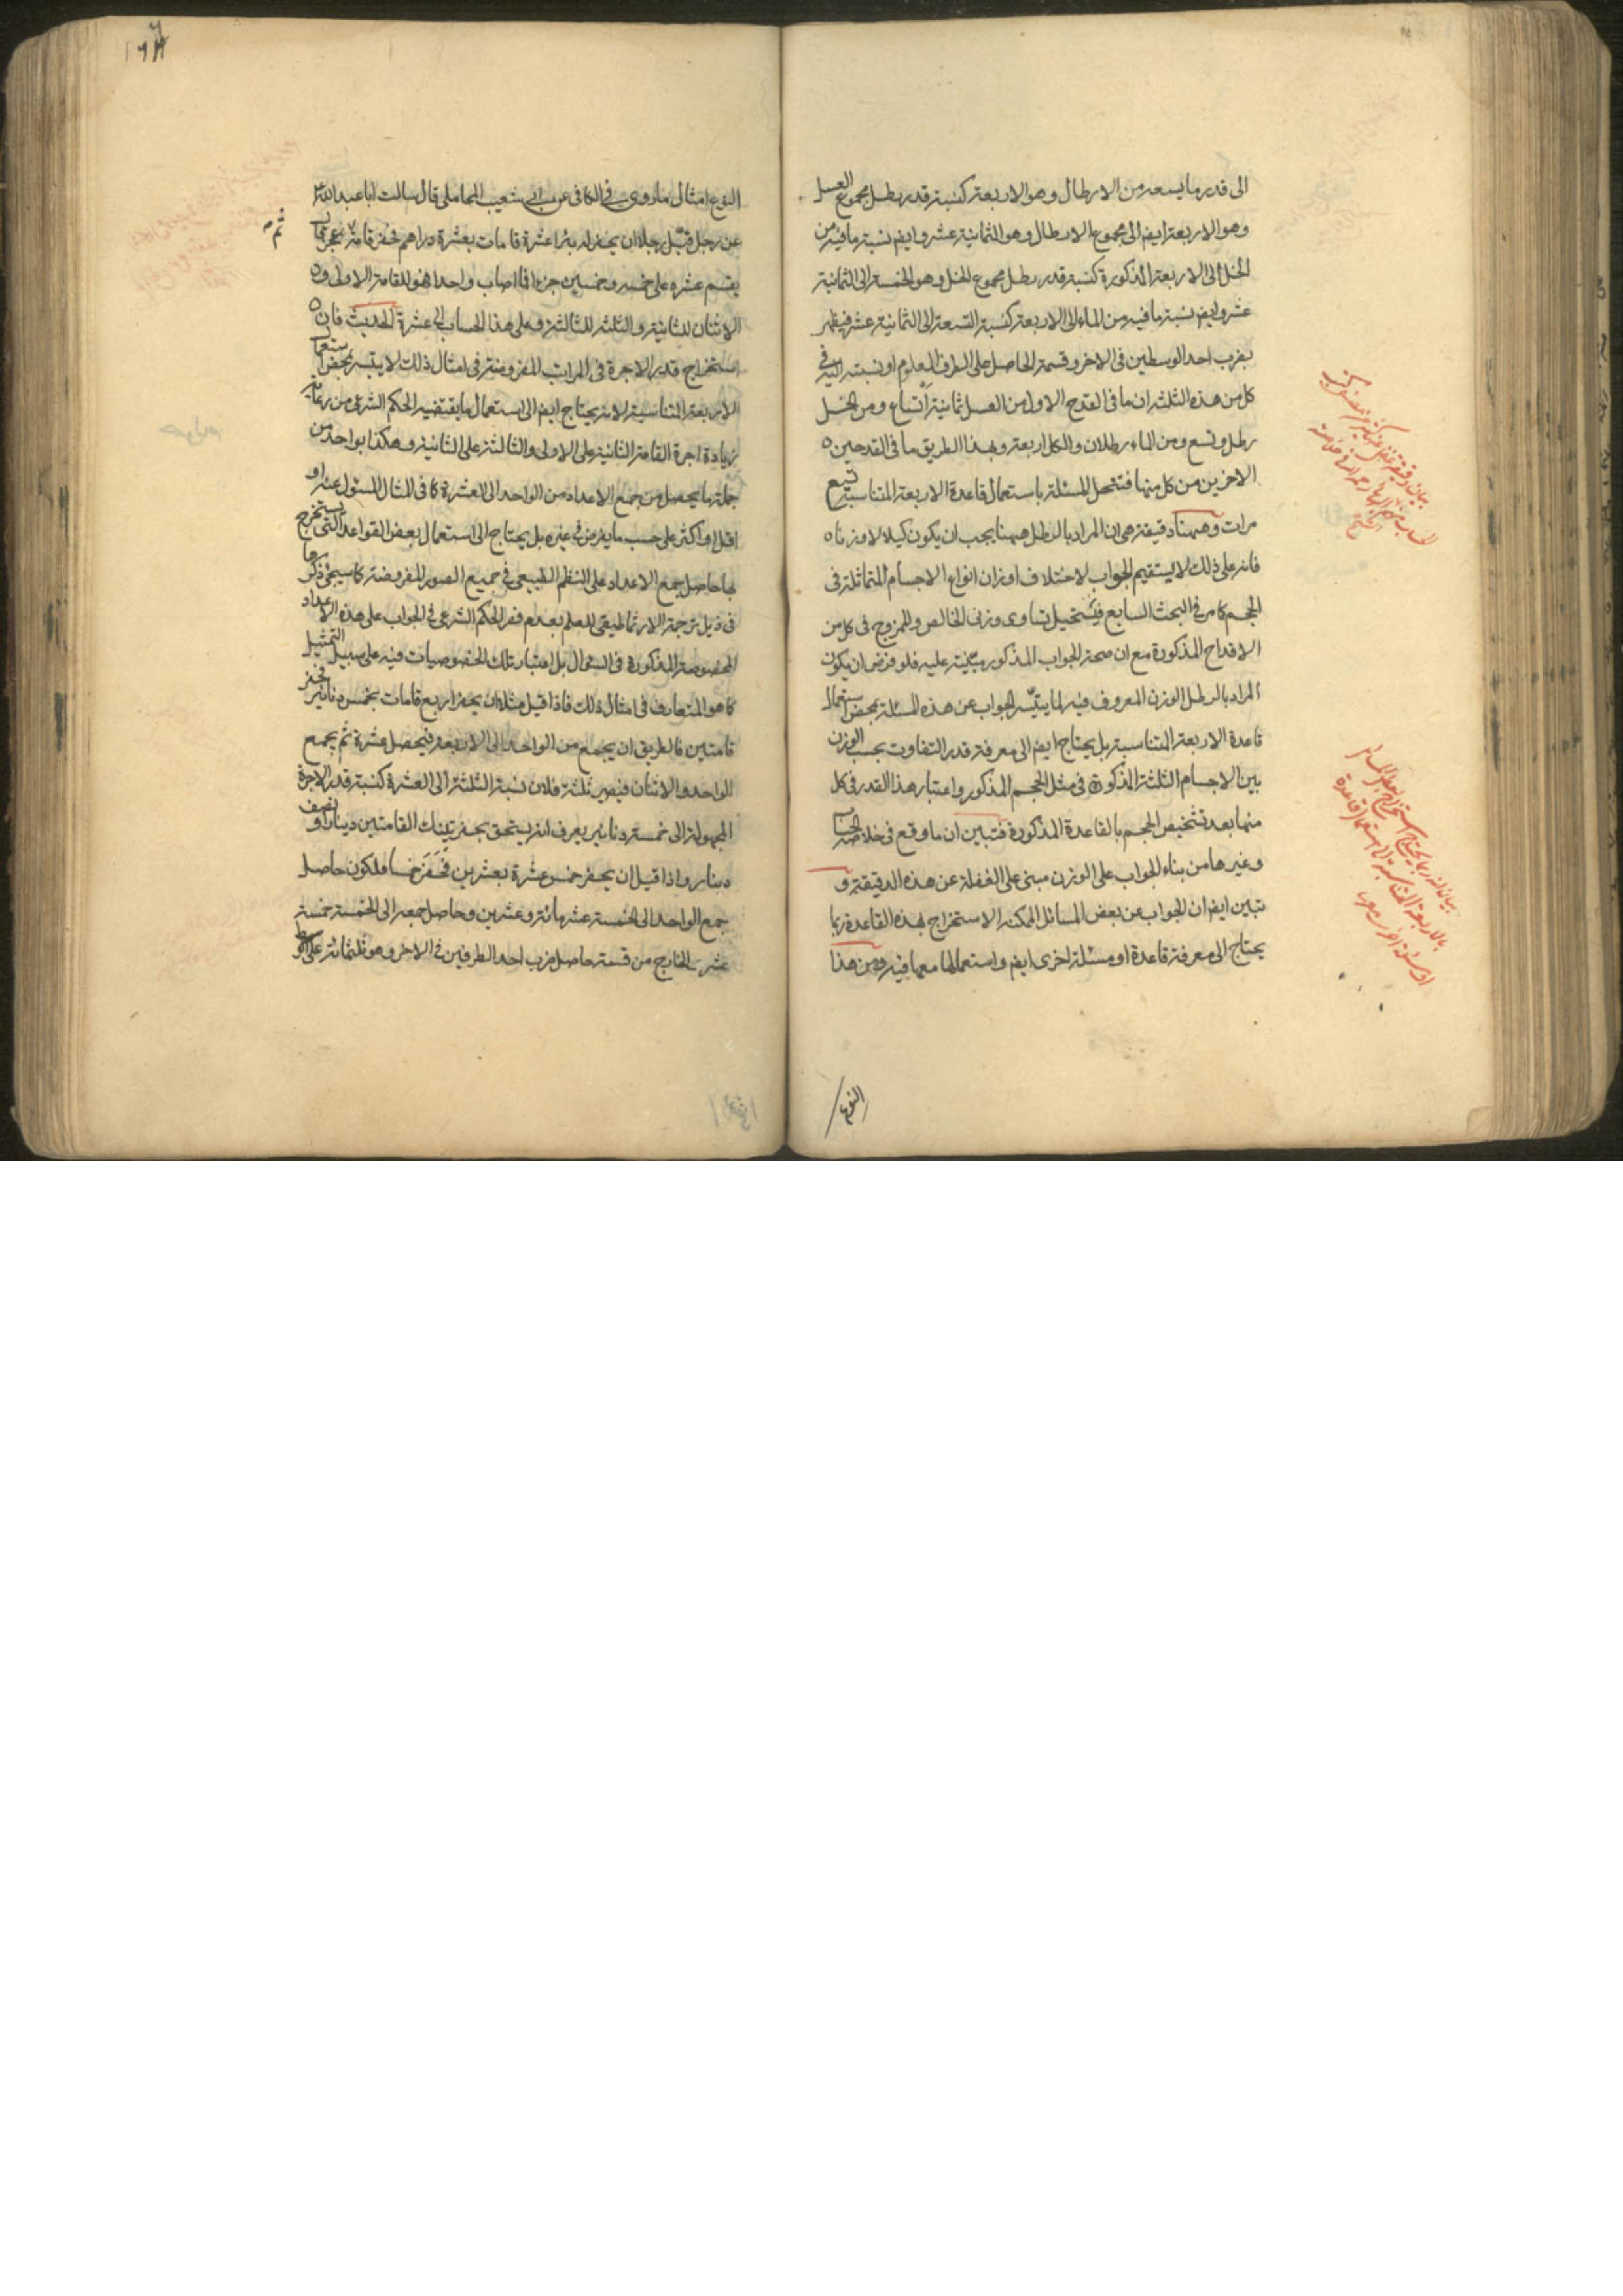 الى قدر ما يسعه من الارطال وهو الاربعة كنسبة قدر رطل مجموع العسل
وهو الاربعة ايضا الى مجموع الارطال وهو الثمانية عشر وايضا نسبة ما فيه من
الخل الى الاربعة المذكورة كنسبة قدر رطل مجموع الخل وهو الخمسة الى الثمانية
عشر وايضا نسبة ما فيه من الماء الى الاربعة كنسبة التسعة الى الثمانية عشر فيظهر
بضرب احد الوسطين فى الاخر وقسمة الحاصل على الطرف المعلوم او نسبته اليه فى
كل من هذه الثلثة ان ما فى القدح الاول من العسل ثمانية اتساع ومن الخل
رطل وتسع ومن الماء رطلان والكل اربعة وبهذا الطريق ما فى القدحين
الاخرين من كل منها فتنحل المسئلة باستعمال قاعدة الاربعة المتناسبة تسع
مرات وههنا دقيقة هى ان المراد بالرطل ههنا يجب ان يكون كيلا لا وزنا
فانه على ذلك لا يستقيم الجواب لاختلاف اوزان انواع الاجسام المتماثلة فى
الحجم كما مر فى البحث السابع فيستحيل تساوى وزنى الخالص والممزوج فى كل من
الاقداح المذكورة مع ان صحة الجواب المذكور مبتنية عليه فلو فرض ان يكون
المراد بالرطل الوزن المعروف فيه لما يتيسر الجواب عن هذه المسئلة بمحض استعمال
قاعدة الاربعة المتناسبة بل يحتاج ايضا الى معرفة قدر التفاوت بحسب الوزن
بين الاجسام الثلثة المذكورة فى مثل الحجم المذكور واعتبار هذا القدر فى كل
منها بعد تشخيص الحجم بالقاعدة المذكورة فتبين ان ما وقع فى خلاصة الحساب
وغيرها من بناء الجواب على الوزن مبنى على الغفلة عن هذه الدقيقة و
تبين ايضا ان الجواب عن بعض المسائل الممكنة الاستخراج بهذه القاعدة ربما
يحتاج الى معرفة قاعدة او مسئلة اخرى ايضا واستعمالها معها فيه ومن هذا
النوع
النوع امثال ما روى فى الكافى عن ابى شعيب المحاملى قال سالت ابا عبد الله
عن رجل قبّل رجلا ان يحفر له بئرا عشرة قامات بعشرة دراهم فحفر قامة ثم عجز قال
يقسم عشرة على خمسة وخمسين جزءا فما اصاب واحدا فهو للقامة الاولى و
الاثنان للثانية والثلثة للثالثة وعلى هذا الحساب الى عشرة الحديث فان
استخراج قدر الاجرة فى المراتب المفروضة فى امثال ذلك لا يتيسر بمحض استعمال
الاربعة المتناسبة لانه يحتاج ايضا الى استعمال ما يقتضيه الحكم الشرعى من رعاية
زيادة اجرة القامة الثانية على الاولى والثالثة على الثانية وهكذا بواحد من
جملة ما يحصل من جمع الاعداد من الواحد الى العشرة كما فى المثال المسئول عنه او
اقل او اكثر على حسب ما يفرض فى غيره بل يحتاج الى استعمال بعض القواعد التى يستخرج
بها حاصل جمع الاعداد على النظم الطبيعى فى جميع الصور المفروضة كما سيجئ ذكرها
فى ذيل ترجمة الارثماطيقى للعلم بعدم قصر الحكم الشرعى فى الجواب على هذه الاعداد
المخصوصة المذكورة فى السؤال بل اعتبار تلك الخصوصيات فيه على سبيل التمثيل
كما هو المتعارف فى امثال ذلك فاذا قيل مثلا ان يحفر اربع قامات بخمس دنانير فحفر
قامتين فالطريق ان يجمع من الواحد الى الاربعة فيحصل عشرة ثم يجمع
الواحد والاثنان فيصير ثلثة فلان نسبة الثلثة الى العشرة كنسبة قدر الاجرة
المجهولة الى خمسة دنانير يعرف انه يستحق بحفر تينك القامتين دينارا ونصف
دينار واذا قيل ان يحفر خمس عشرة بعشرين فحفر خمسا فلكون حاصل
جمع الواحد الى الخمسة عشر مائة وعشرين وحاصل جمعه الى الخمسة خمسة
عشر الخارج من قسمة حاصل ضرب احد الطرفين فى الاخر وهو ثلثمائة على